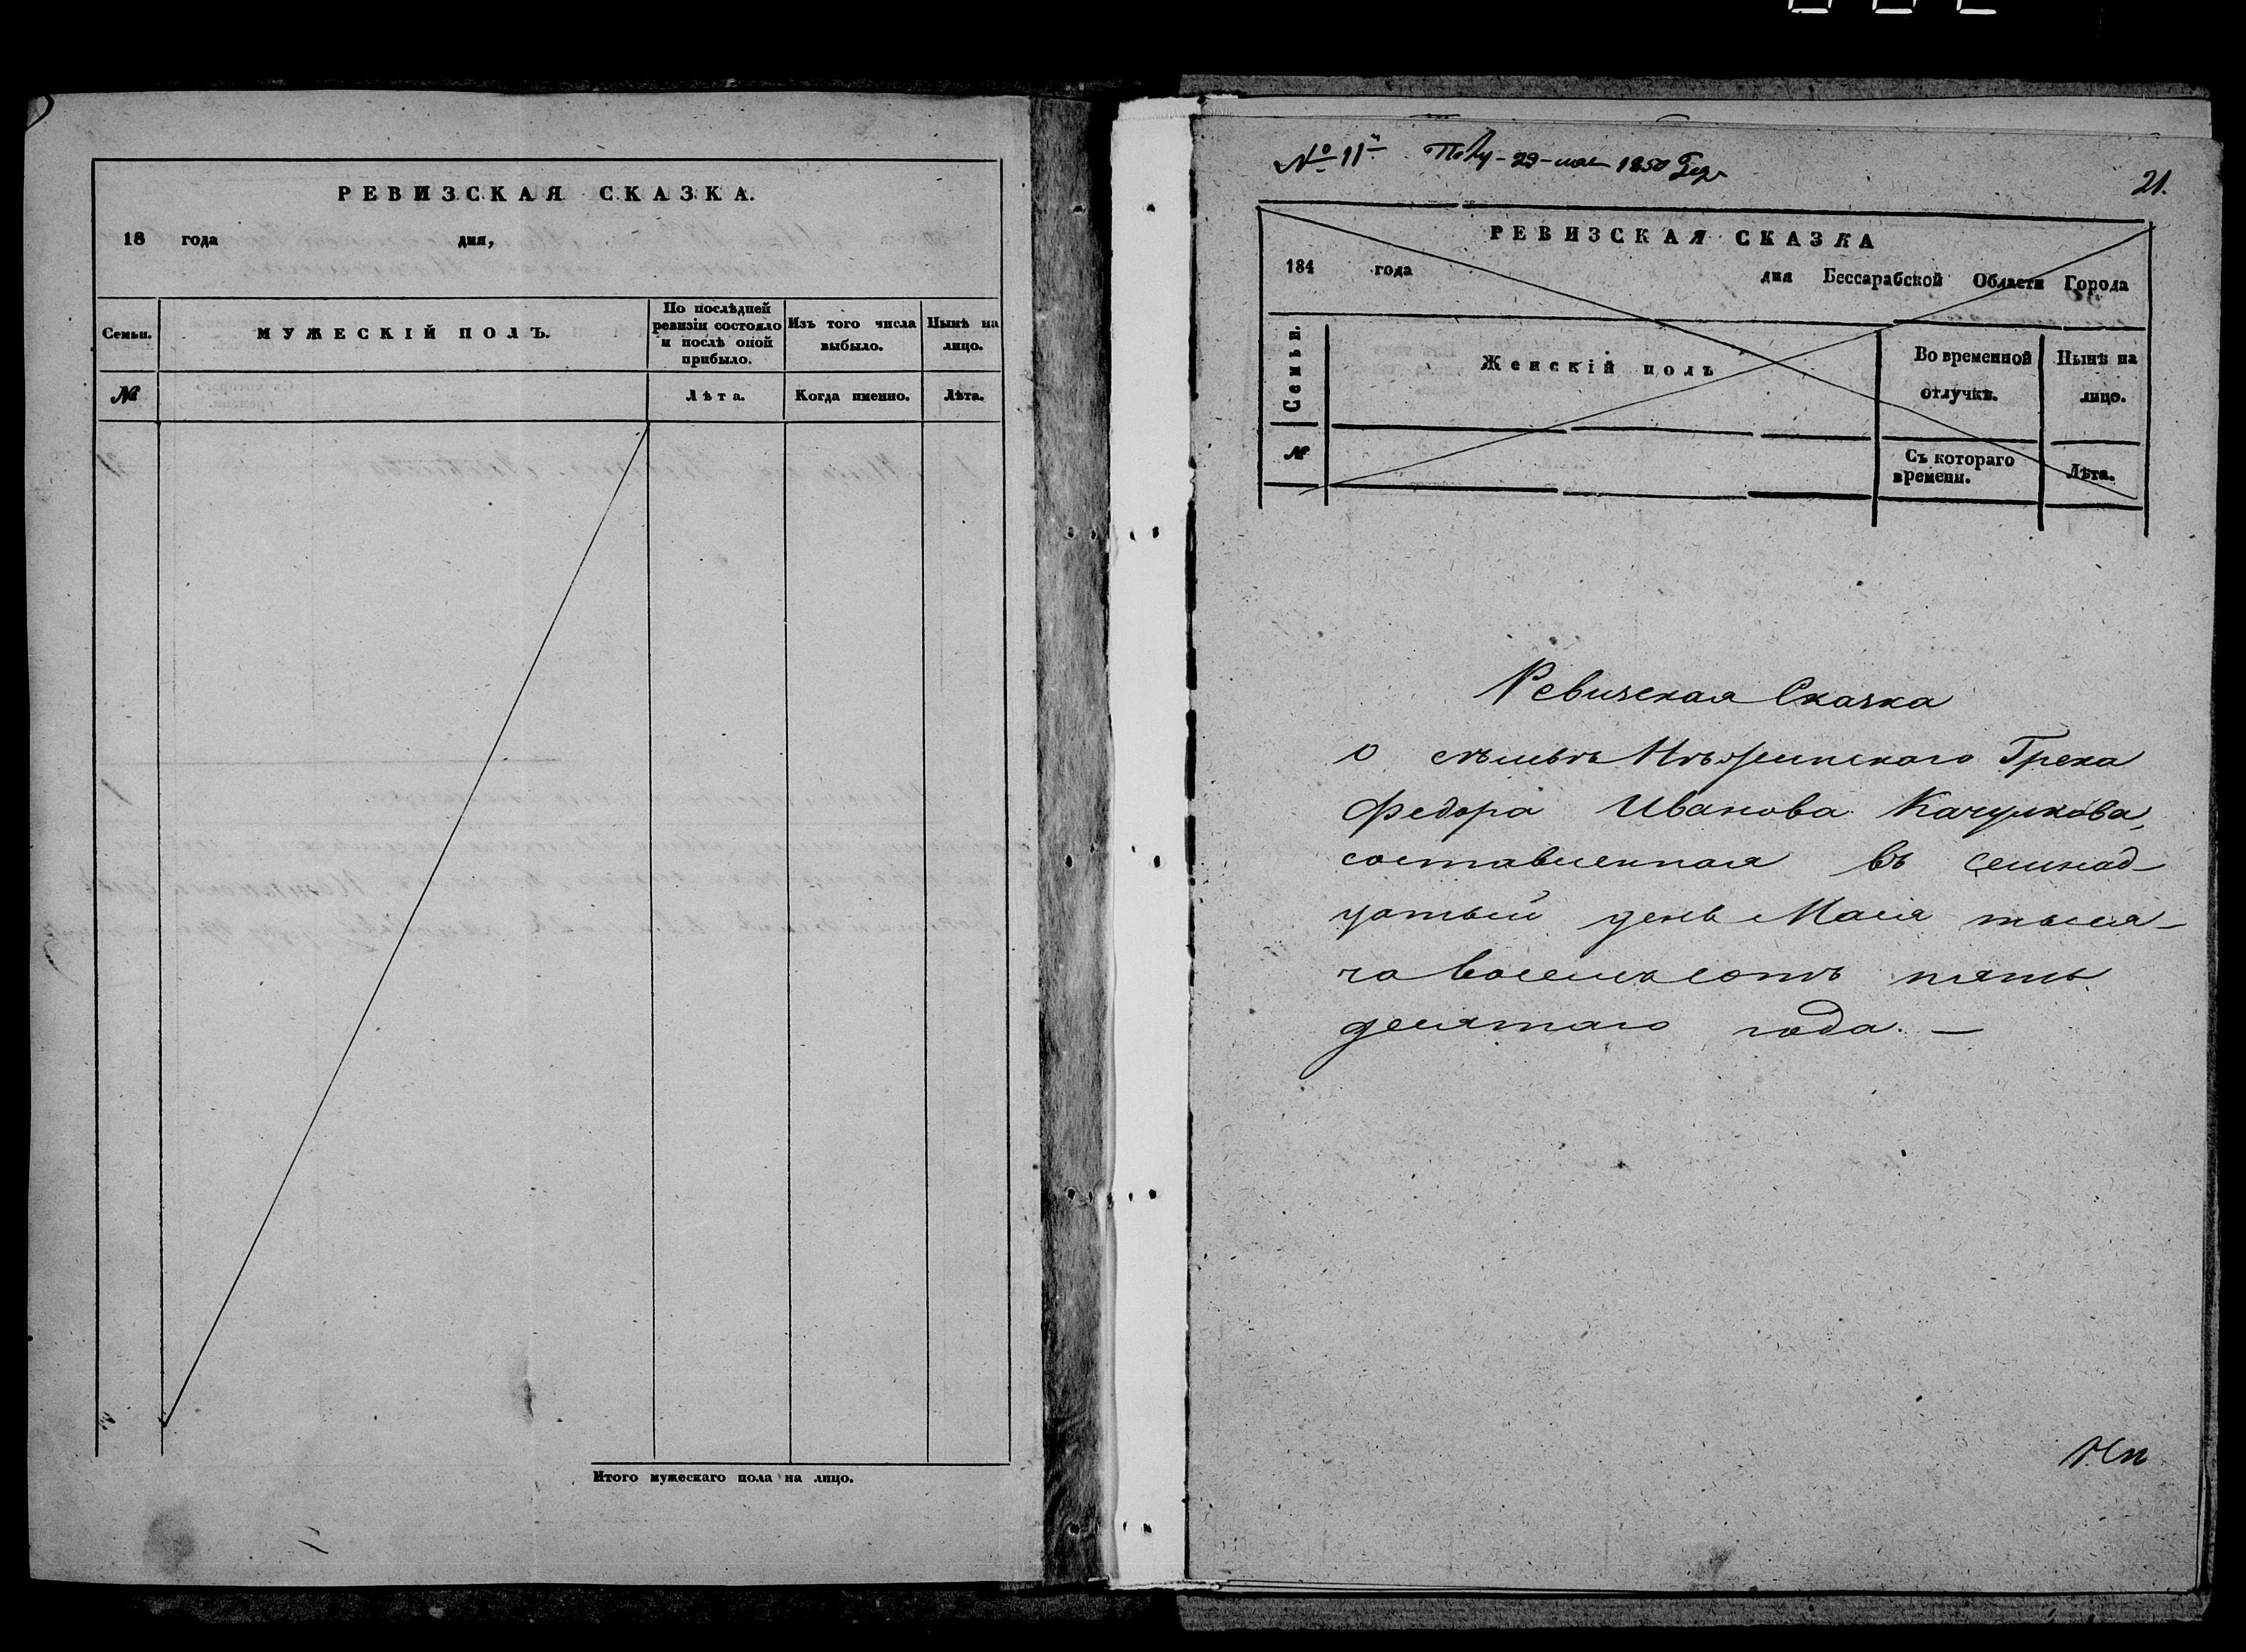 РЕВИЗСКАЯ СКАЗКА.
18 года дня,
Семьи.
МУЖЕСКІЙ ПОЛЪ.
По послѣдней ревизіи состояло и послѣ оной прибыло.
Изъ того числа выбыло.
Нынѣ на лицо.
№
Лѣта.
Когда именно.
Лѣта.
Итого мужескаго пола на лицо.
№ 11й 29 мая 1850
21.
РЕВИЗСКАЯ СКАЗКА
184 года дня Бессарабской Области Города
Семьи.
Женскій полъ
Во временной отлучкѣ.
Нынѣ на лицо.
№
Съ котораго времени.
Лѣта.
Ревизская Сказка
о семьѣ Нѣжинскаго Грека
Федора Иванова Качулкова,
составленная въ семнад-
цатый день Маія тыся-
ча восемьсотъ пять
десятаго года. —